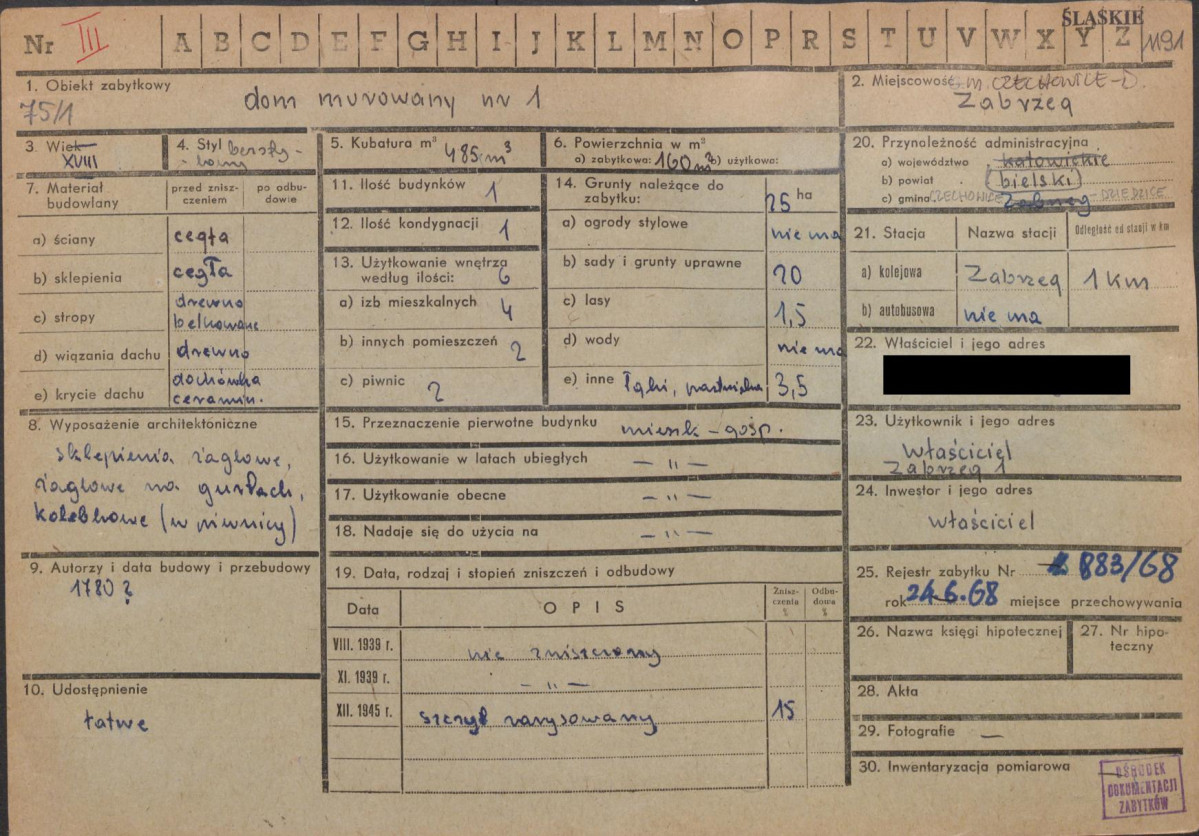 ŚLĄSKIE
Nr III A B C D E F G H I J K L M N O P R S T U V W X Y Z 1191
1. Obiekt zabytkowy
75/1
dom murowany nr 1
2. Miejscowość m. CZECHOWICE-D.
Zabrzeg
3. Wiek
XVIII
4. Styl bezsty-
-lowy
5. Kubatura m³ 485 m³
6. Powierzchnia w m²
a) zabytkowa: 160 m² b) użytkowa:
20. Przynależność administracyjna
a) województwo katowickie
b) powiat bielski
c) gmina CZECHOWICE Zabrzeg - DZIEDZICE
7. Materiał
budowlany
przed znisz-
czeniem
po odbu-
dowie
a) ściany cegła
b) sklepienia cegła
c) stropy drewno
belkowane
d) wiązania dachu drewno
e) krycie dachu dachówka
ceramin.
11. Ilość budynków 1
12. Ilość kondygnacji 1
13. Użytkowanie wnętrza
według ilości: 6
a) izb mieszkalnych 4
b) innych pomieszczeń 2
c) piwnic 2
14. Grunty należące do
zabytku: 25 ha
a) ogrody stylowe nie ma
b) sady i grunty uprawne 20
c) lasy 1,5
d) wody nie ma
e) inne łąki, pastwiska 3,5
21. Stacja Nazwa stacji Odległość od stacji w km
a) kolejowa Zabrzeg 1 km
b) autobusowa nie ma
22. Właściciel i jego adres
8. Wyposażenie architektoniczne
sklepienia żaglowe,
żaglowe na gurtach,
kolebkowe (w piwnicy)
15. Przeznaczenie pierwotne budynku mieszk - gosp.
16. Użytkowanie w latach ubiegłych — " —
17. Użytkowanie obecne — " —
18. Nadaje się do użycia na — " —
23. Użytkownik i jego adres
właściciel
Zabrzeg 1
24. Inwestor i jego adres
właściciel
9. Autorzy i data budowy i przebudowy
1780 ?
10. Udostępnienie
łatwe
19. Data, rodzaj i stopień zniszczeń i odbudowy
Data OPIS Znisz-
czenia
%
Odbu-
dowa
%
VIII. 1939 r. nie zniszczony
XI. 1939 r. — " —
XII. 1945 r. szczyt zarysowany 15
25. Rejestr zabytku Nr 883/68
rok 24.6.68 miejsce przechowywania
26. Nazwa księgi hipotecznej
27. Nr hipo-
teczny
28. Akta
29. Fotografie —
30. Inwentaryzacja pomiarowa
OŚRODEK
DOKUMENTACJI
ZABYTKÓW